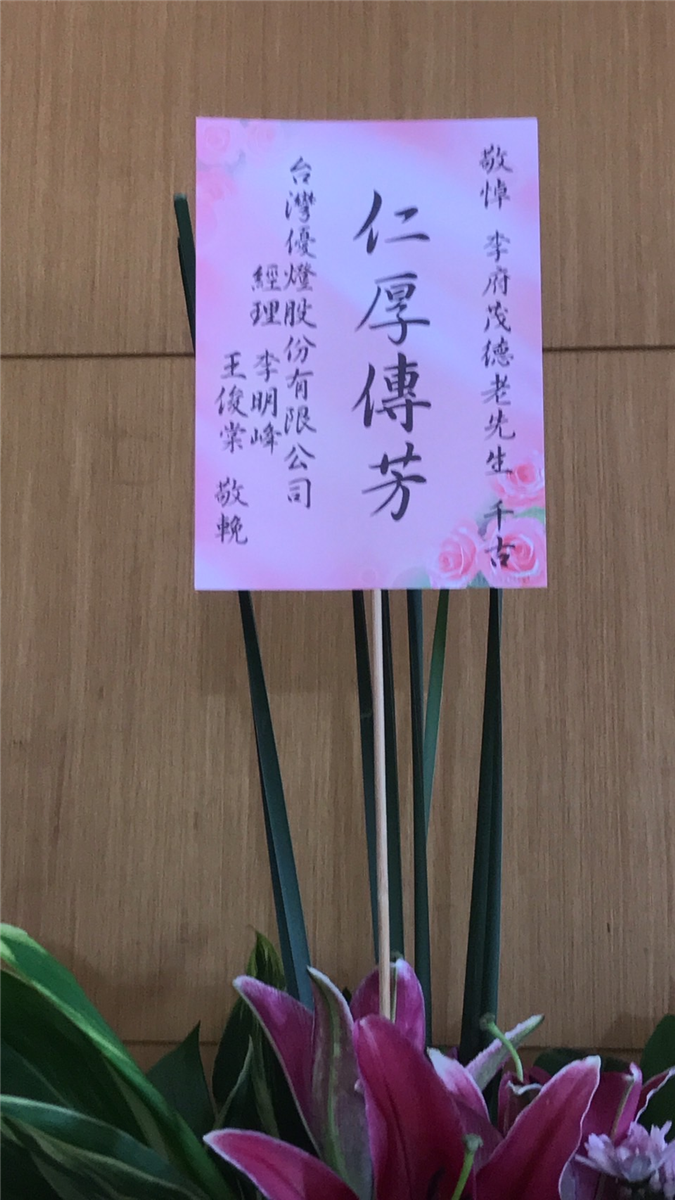 敬悼 李府茂德老先生 千古
仁厚傳芳
台灣優燈股份有限公司
經理 李明峰
王俊棠 敬輓